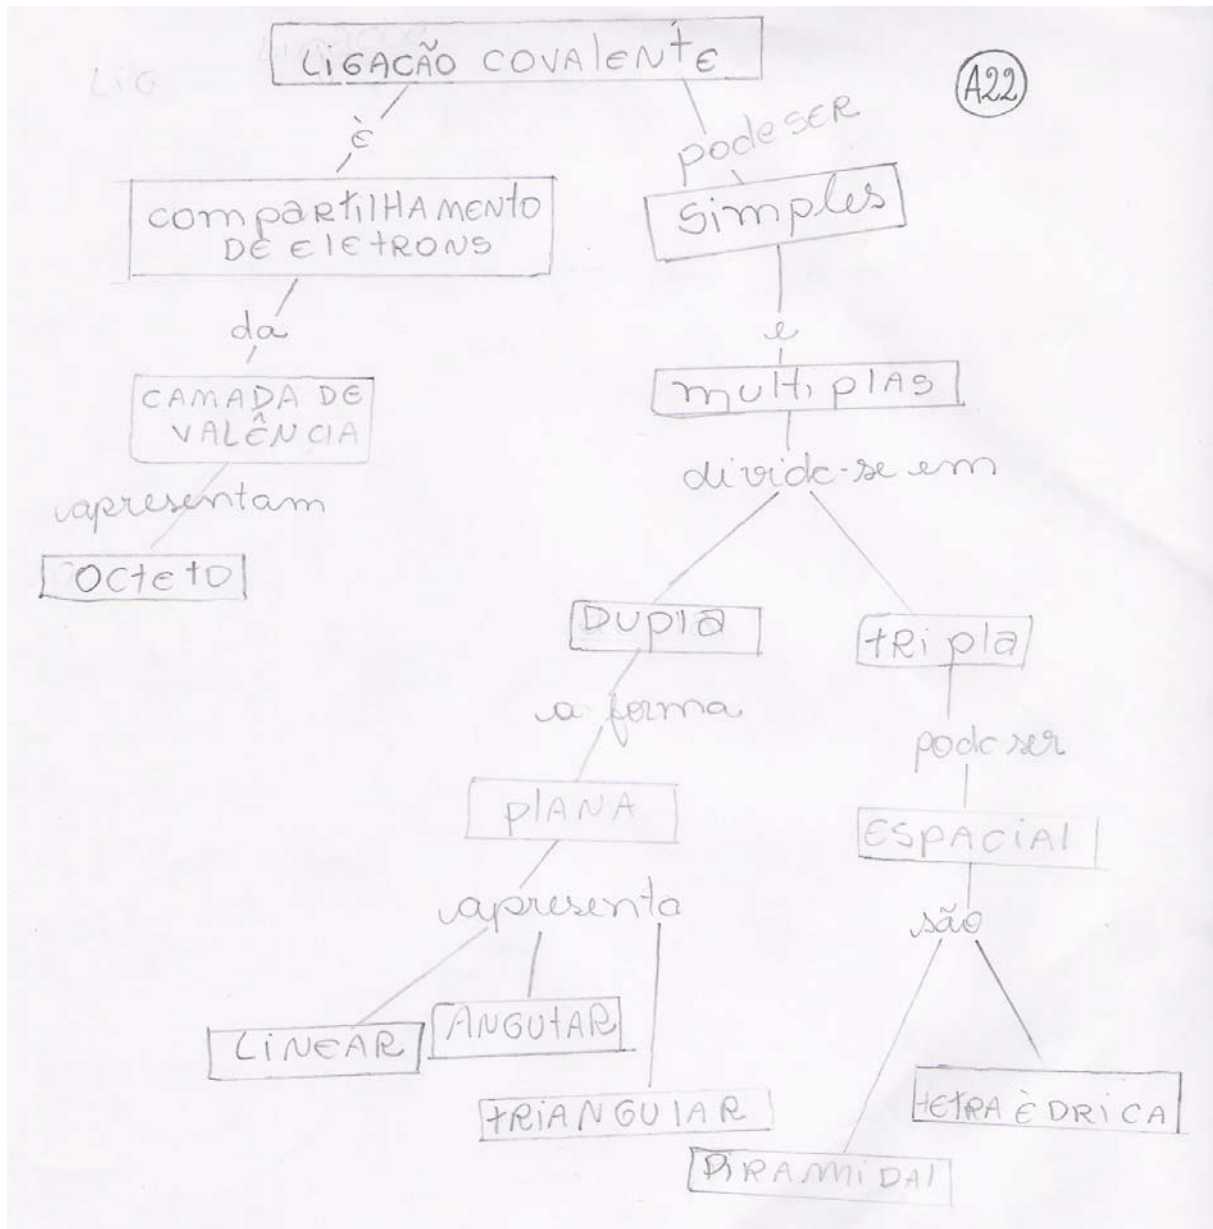 LIGAÇÃO COVALENTE
A22
LIG
è
pode SER
compartilHAMENTO
DE ElEtRONS
Simples
da
e
CAMADA DE
VALÊNCIA
multiplAS
apresentam
divide-se em
octeto
DUPla
tRipla
a forma
pode ser
plANA
ESPACIAl
apresenta
são
LINEAR
ANGUtAR
tRIANGUlAR
tEtRAÈDRICA
PIRAMIDAl